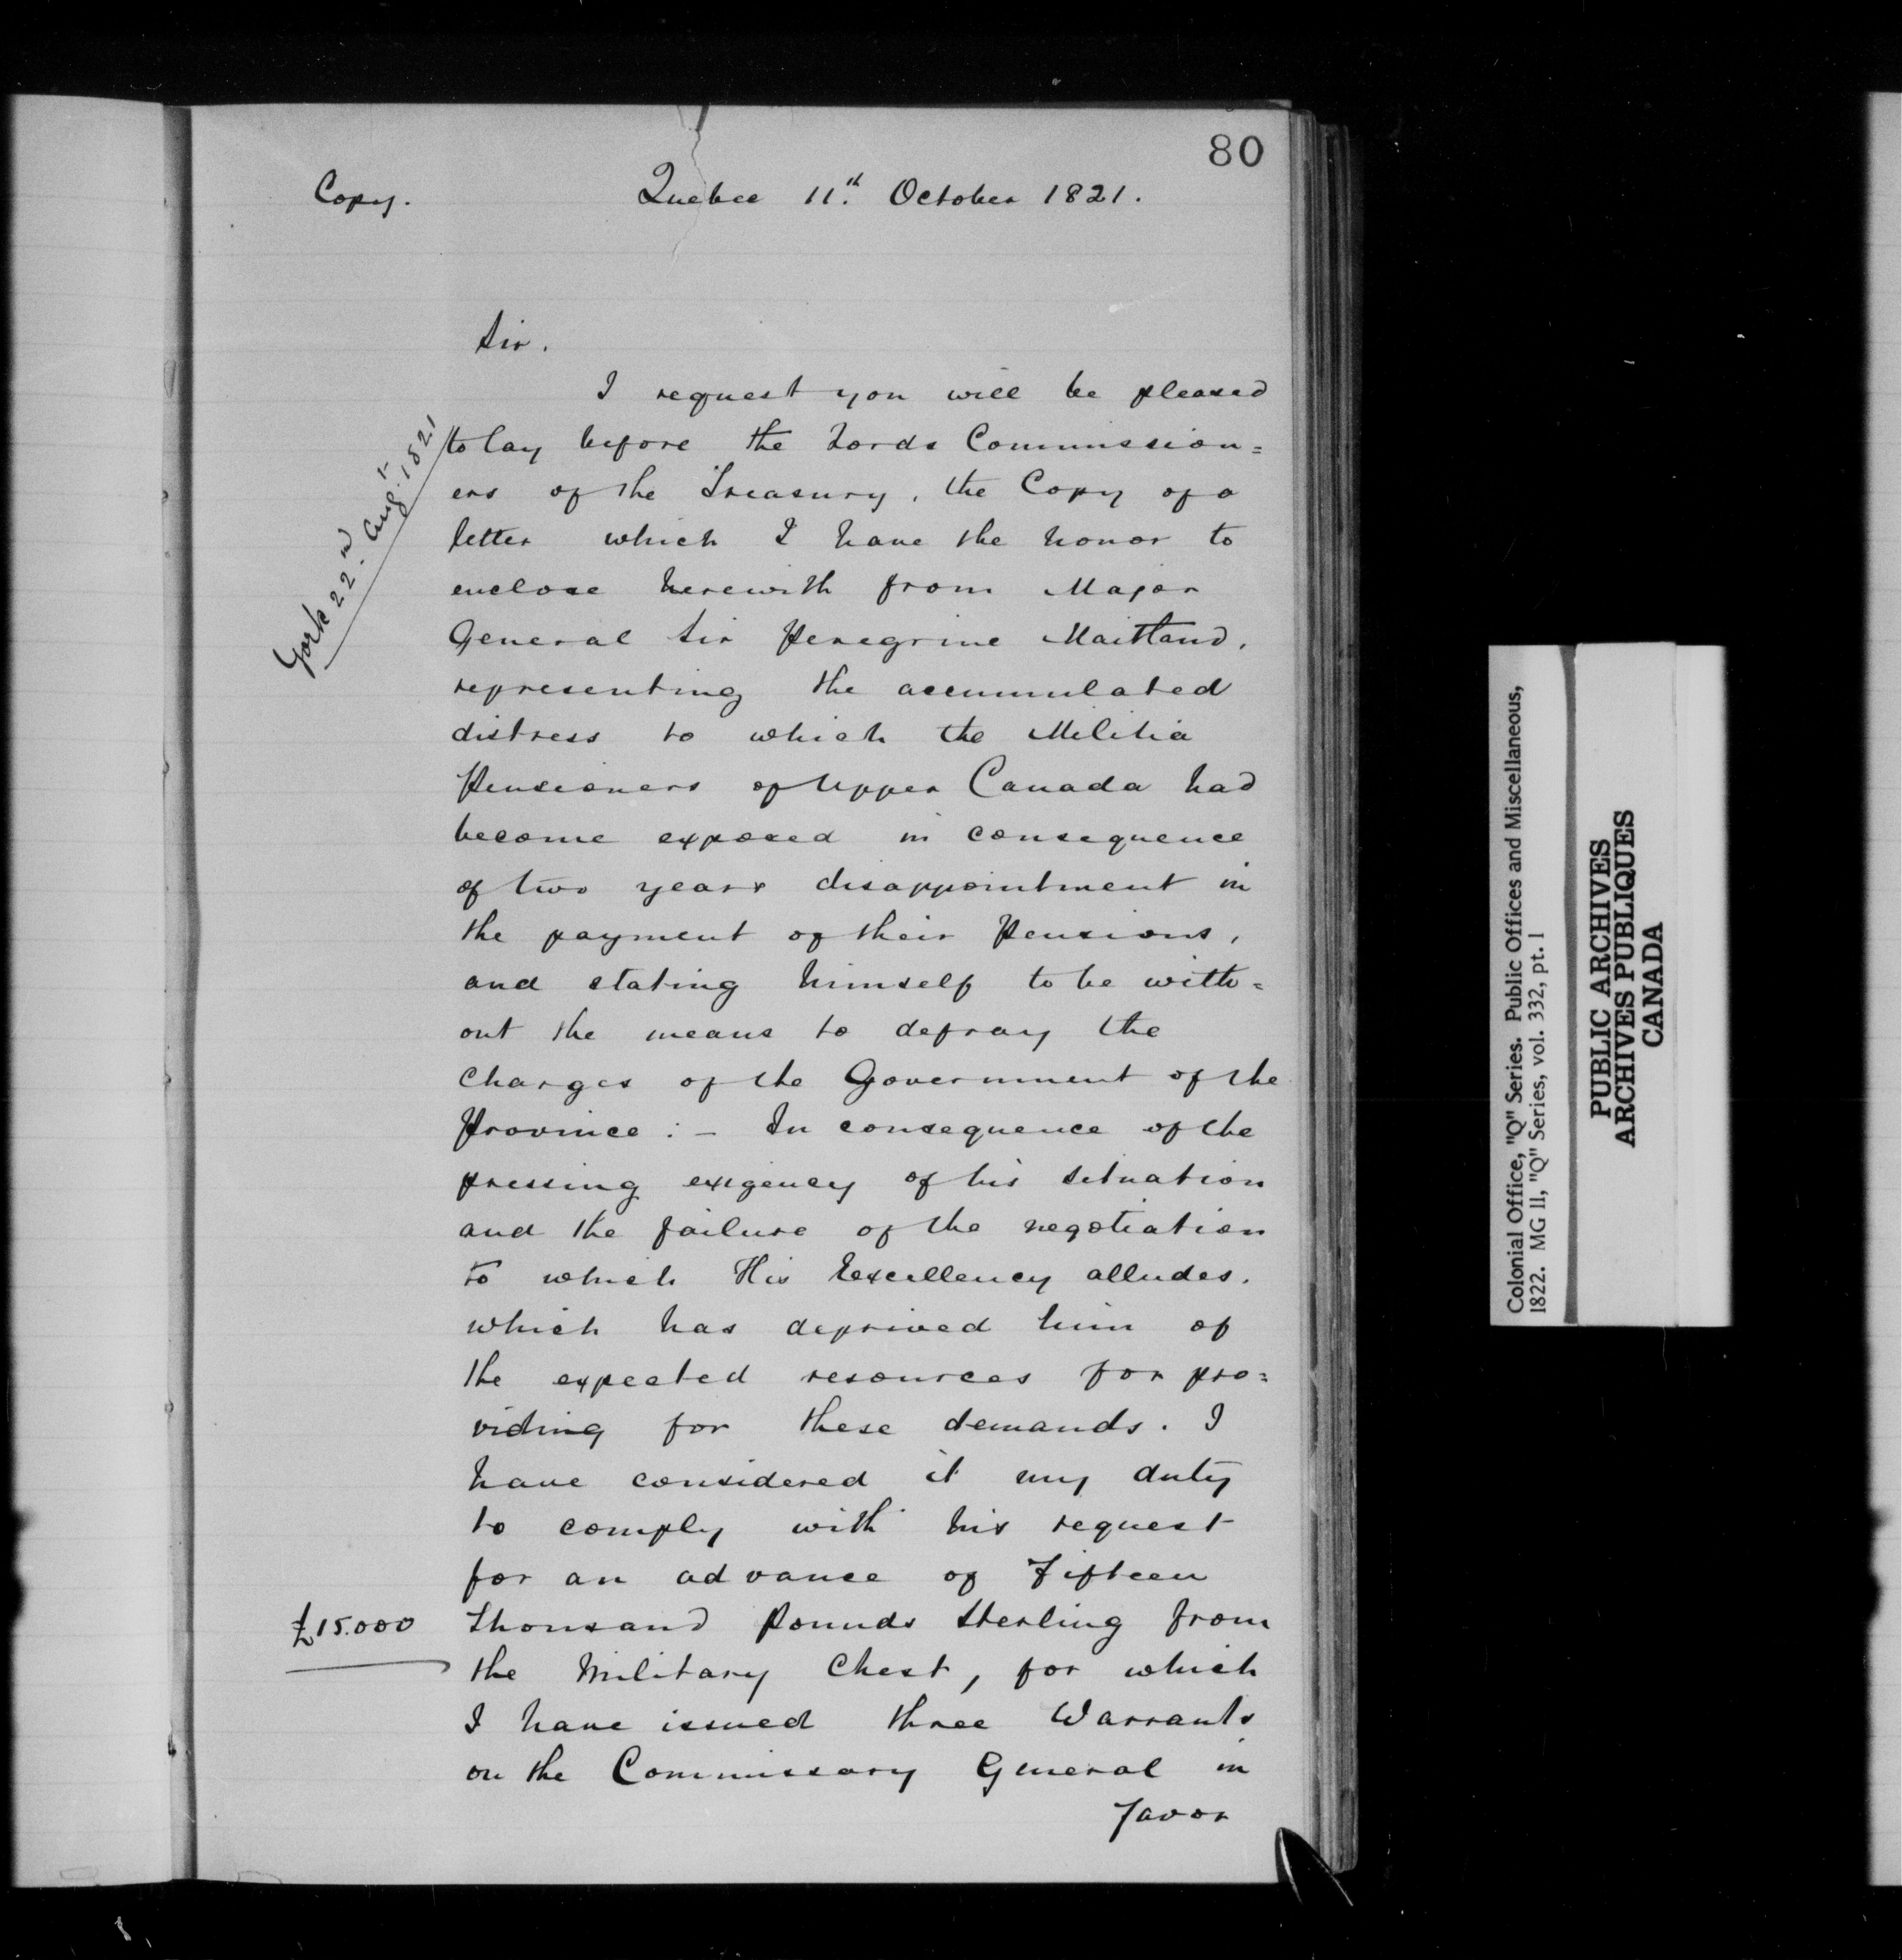 80
Copy. Quebec 11th. October 1821.
Sir.
I request you will be pleased
to lay before the Lords Commission=
ers of the Treasury, the Copy of a
letter which I have the honor to
York 22nd. Augt. 1821
enclose herewith from Major
General Sir Peregrine Maitland,
representing the accumulated
distress to which the Militia
Pensioners of Upper Canada had
become exposed in consequence
of two years disappointment in
the payment of their Pensions,
and stating himself to be with=
out the means to defray the
Charges of the Government of the
Province : – In consequence of the
pressing exigency of his situation
and the failure of the negotiation
to which His Excellency alludes.
which has deprived him of
the expected resources for pro=
viding for these demands. I
have considered it my duty
to comply with his request
for an advance of Fifteen
£15.000 thousand Pounds Sterling from
the Military Chest, for which
I have issued three Warrants
on the Commissary General in
favor
Colonial Office, "Q" Series. Public Offices and Miscellaneous,
1822. MG 11, "Q" Series, vol. 332, pt. 1
PUBLIC ARCHIVES
ARCHIVES PUBLIQUES
CANADA